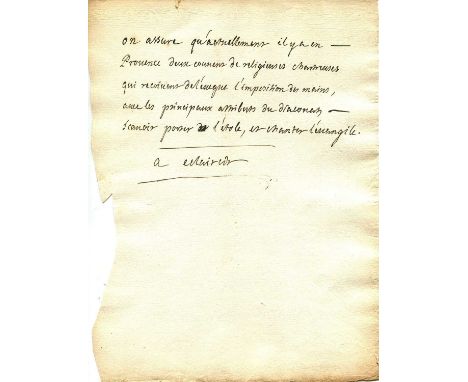 on assure qu'actuellement il y a en —
Provence deux couvens de religieuses chartreuses
qui recoivent de l'eveque l'imposition des mains,
avec les principaux attributs du diaconat, —
scavoir porter l'étole, et chanter l'évangile.
a eclaircir